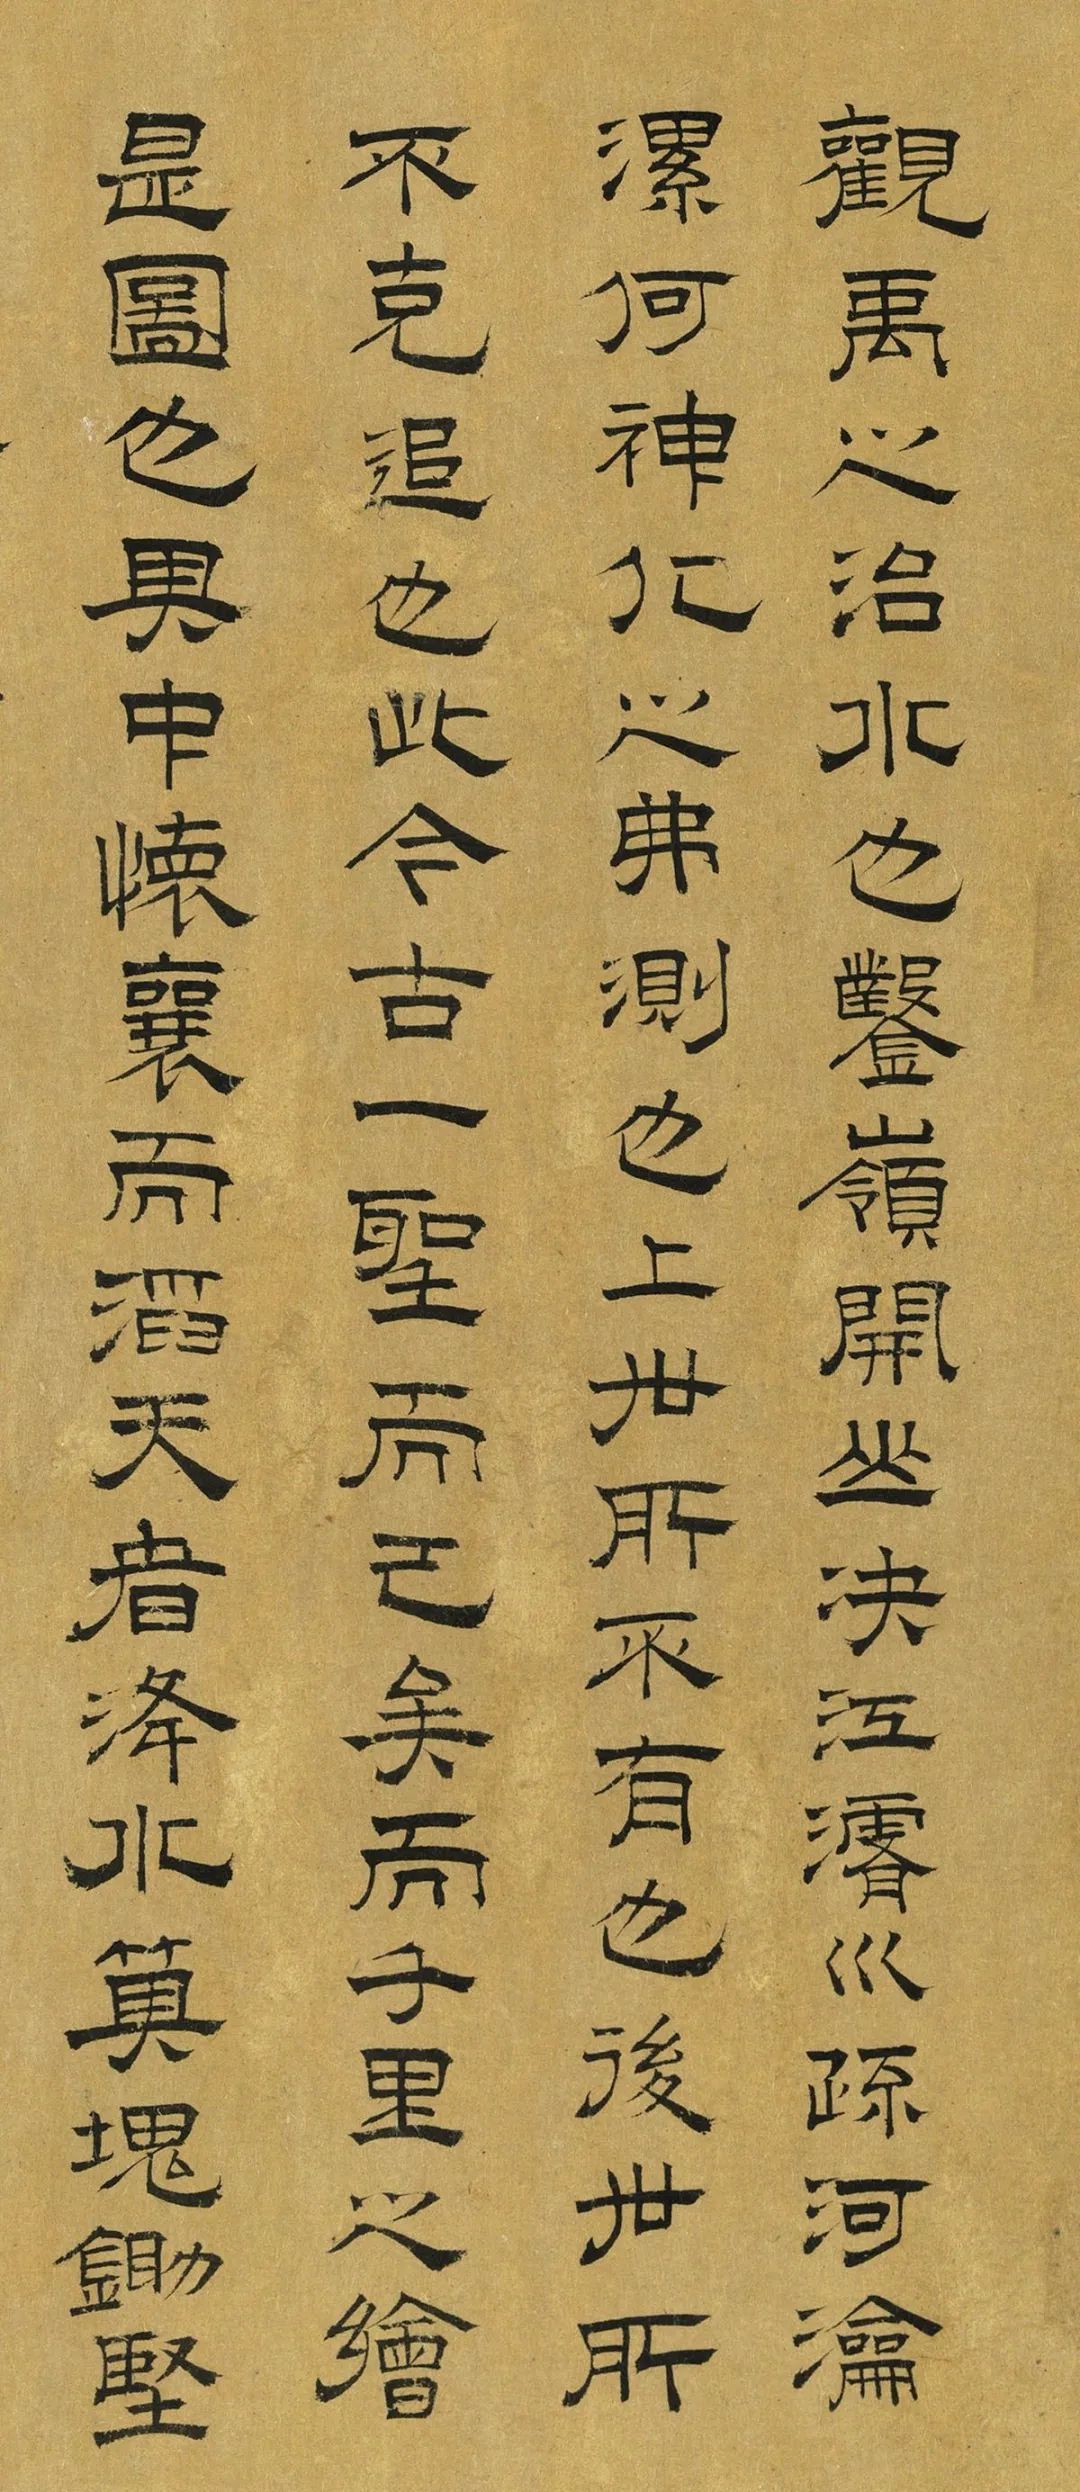 觀禹之治水也鑿嶺開丘決江濬川疏河瀹
漯何神化之弗測也上世所不有也後世所
不克追也此今古一聖而已矣而千里之繪
是圖也其中懷襄而滔天者洚水箕塊鋤堅